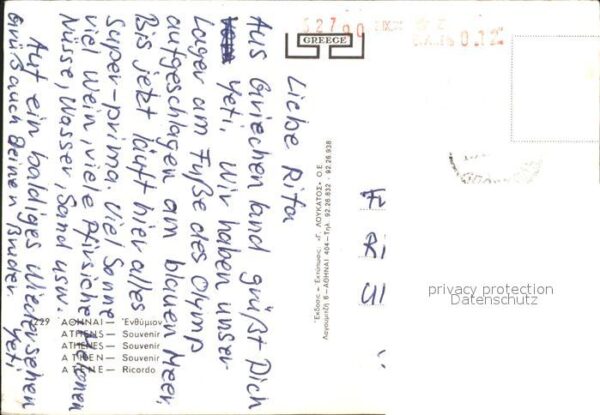 52790
0.12
GREECE
Liebe Rita
Aus Griechenland grüßt Dich
Yeti. Wir haben unser
Lager am Fuße des Olymp
aufgeschlagen am blauen Meer.
Bis jetzt läuft hier alles
Super-prima. Viel Sonne
viel Wein, viele Pfirsiche, Melonen
Nüsse, Wasser, Sand usw.
Auf ein baldiges Wiedersehen
Grüß auch Deinen Bruder. Yeti
Ἔκδοσις - Ἐκτύπωσις: «Γ. ΛΟΥΚΑΤΟΣ» Ο.Ε.
6 - ΑΘΗΝΑΙ 404 - Τηλ. 92.26.832 - 92.26.938
229 ΑΘΗΝΑΙ — Ἐνθύμιον
ATHENS — Souvenir
ATHENES — Souvenir
ATHEN — Souvenir
ATENE — Ricordo
Fr
Ri
Ul
privacy protection
Datenschutz